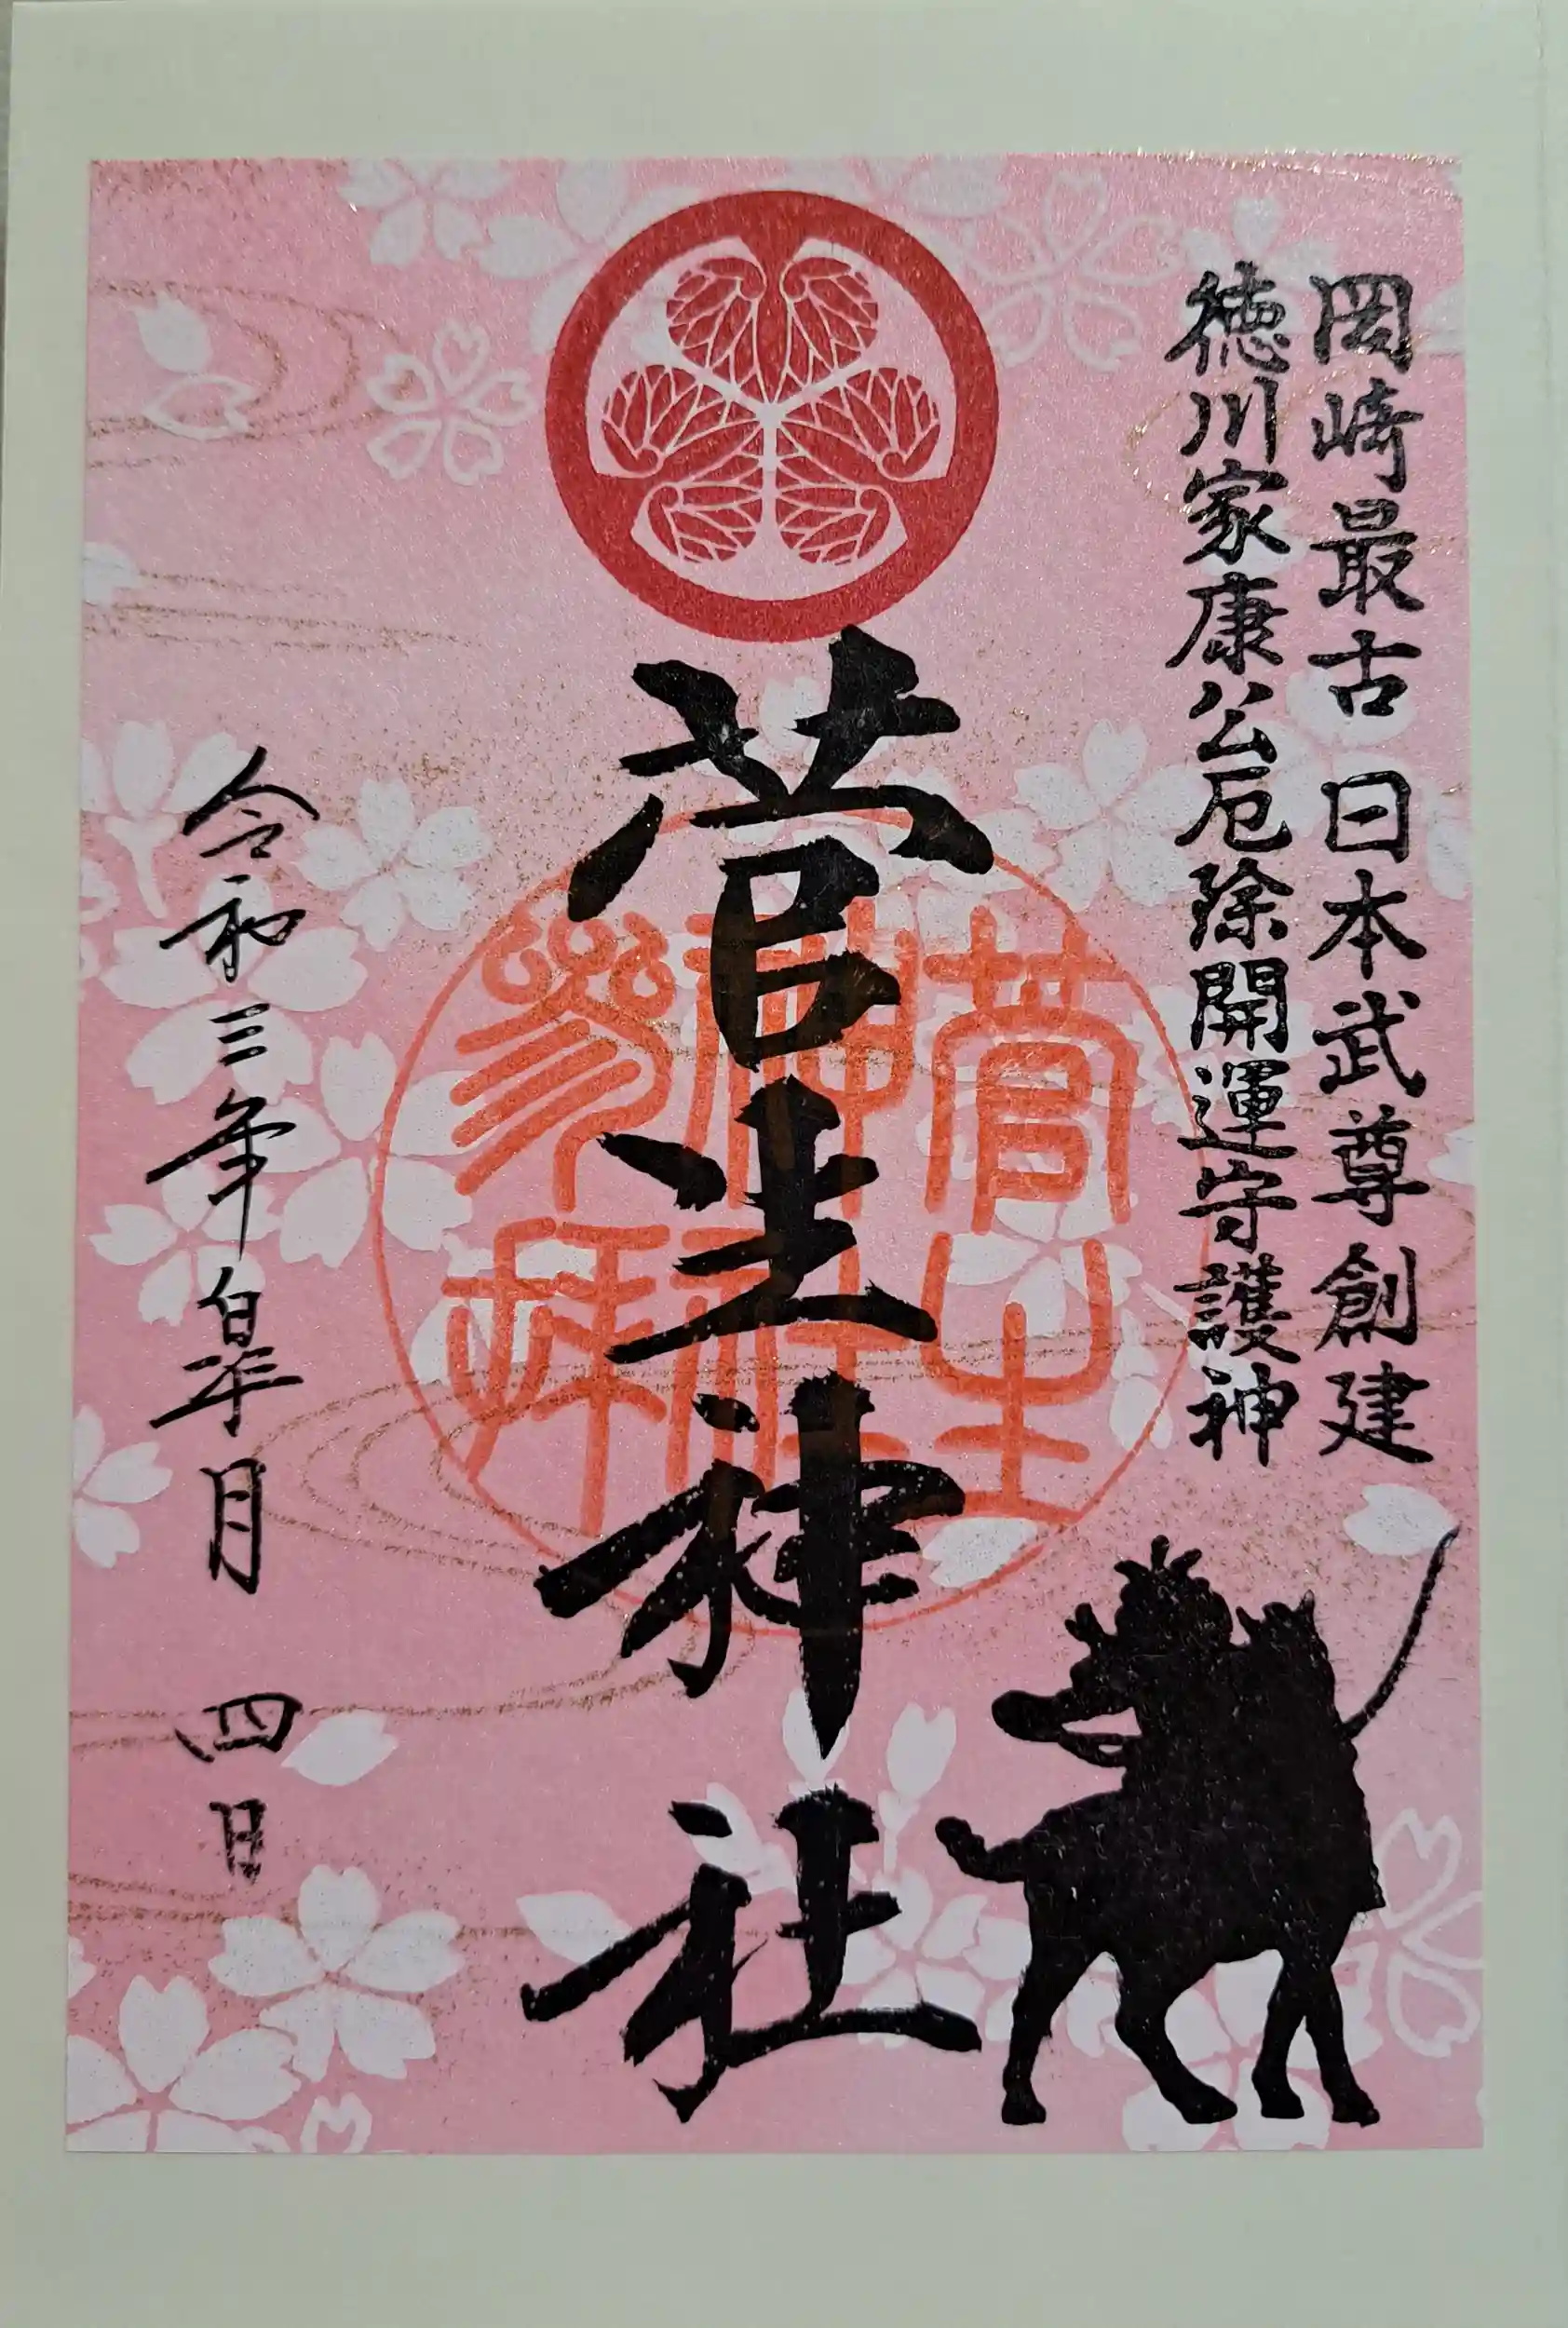 岡崎最古 日本武尊創建
徳川家康公厄除開運守護神
菅生神社
菅生
神社
參拝
令和三年皐月 四日